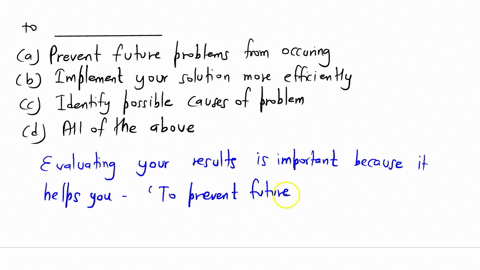 to __________
(a) Prevent future problems from occuring
(b) Implement your solution more efficiently
(c) Identify possible causes of problem
(d) All of the above
Evaluating your results is important because it
helps you - ‘To prevent future